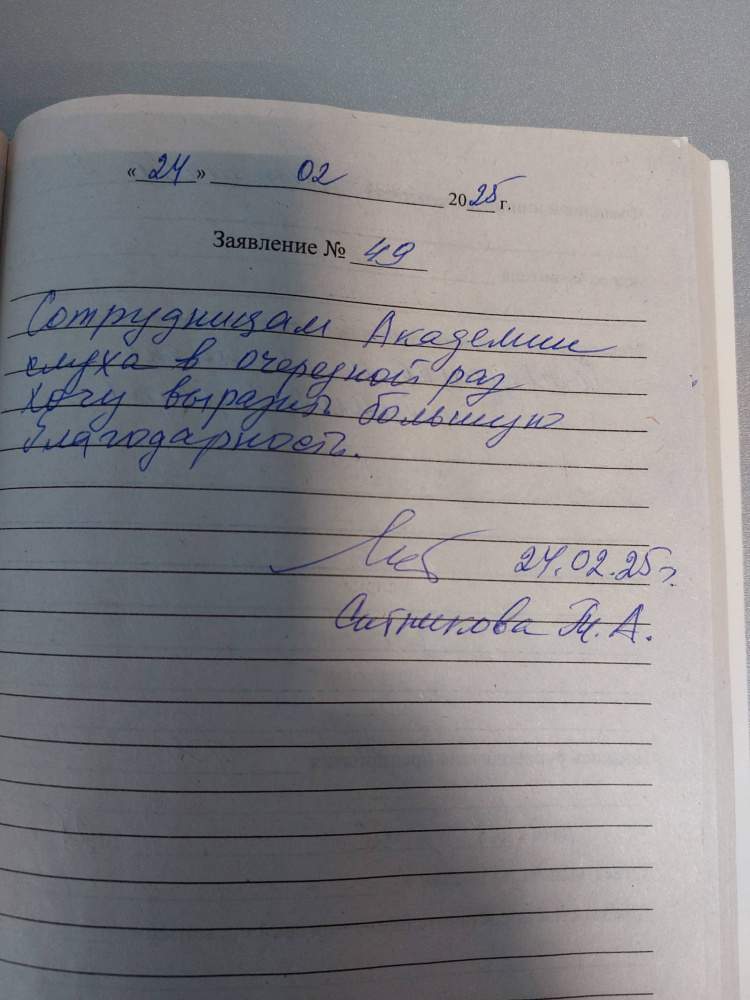 « 24 » 02 2025 г.
Заявление № 49
Сотрудницам Академии
слуха в очередной раз
хочу выразить большую
благодарность.
24.02.25г.
Ситникова Т.А.